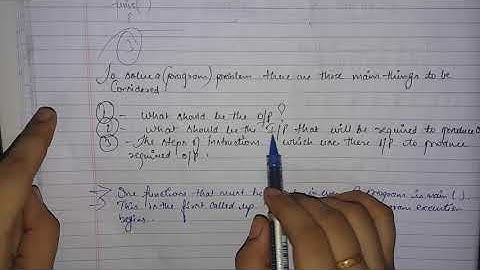 (3)
To solve a (program) problem there are three main things to be
Considered
(1) - What should be the O/P ?
(2) - What should be the I/P that will be required to produce O
(3) - The steps of instructions which use these I/P to produce
required O/P.
One functions that must be in every C program is main ().
This is the first called up program execution
begins.